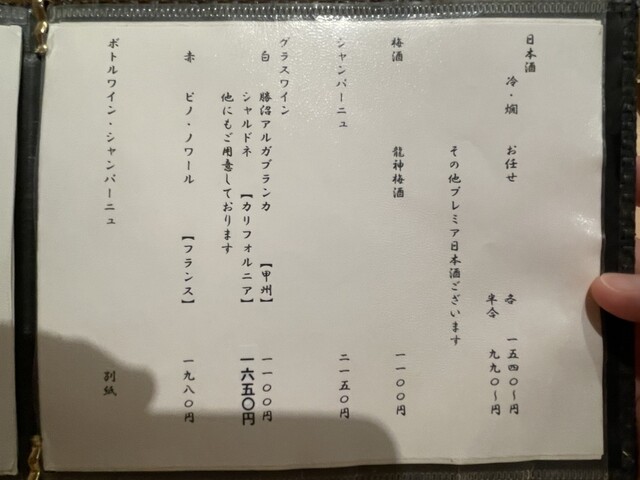 日本酒
冷・燗 お任せ 各 一五四〇～円
半合 九九〇～円
その他プレミア日本酒ございます
梅酒 龍神梅酒 一一〇〇円
シャンパーニュ 二一五〇円
グラスワイン
白 勝沼アルガブランカ 【甲州】 一一〇〇円
シャルドネ 【カリフォルニア】 一六五〇円
他にもご用意しております
赤 ピノ・ノワール 【フランス】 一九八〇円
ボトルワイン・シャンパーニュ 別紙